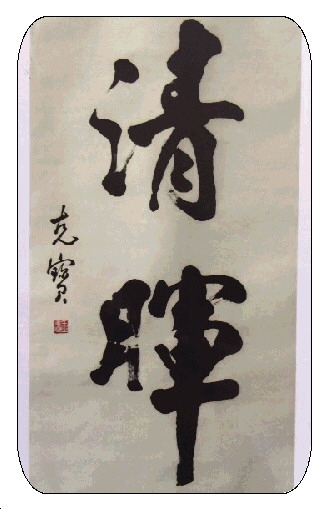 清暉
克寶